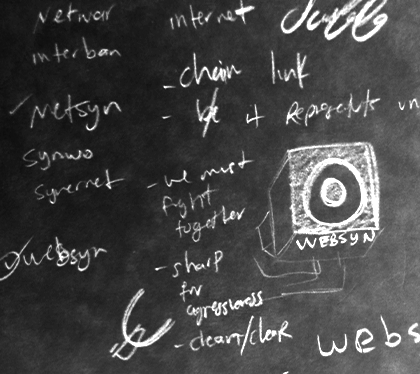 Netwar
internet
interban
- chain link
✓ Netsyn
- it Represents un
synwo
synernet
- we must
fight
together
WEBSYN
✓ websyn
- sharp
for
agressivness
- clean/clear
webs